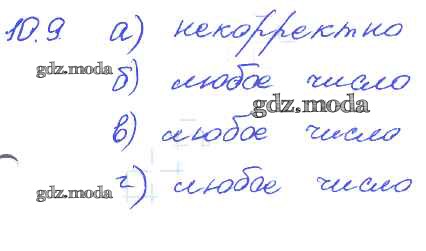 10.9 а) некорректно
gdz.moda б) любое число
gdz.moda
в) любое число
gdz.moda г) любое число